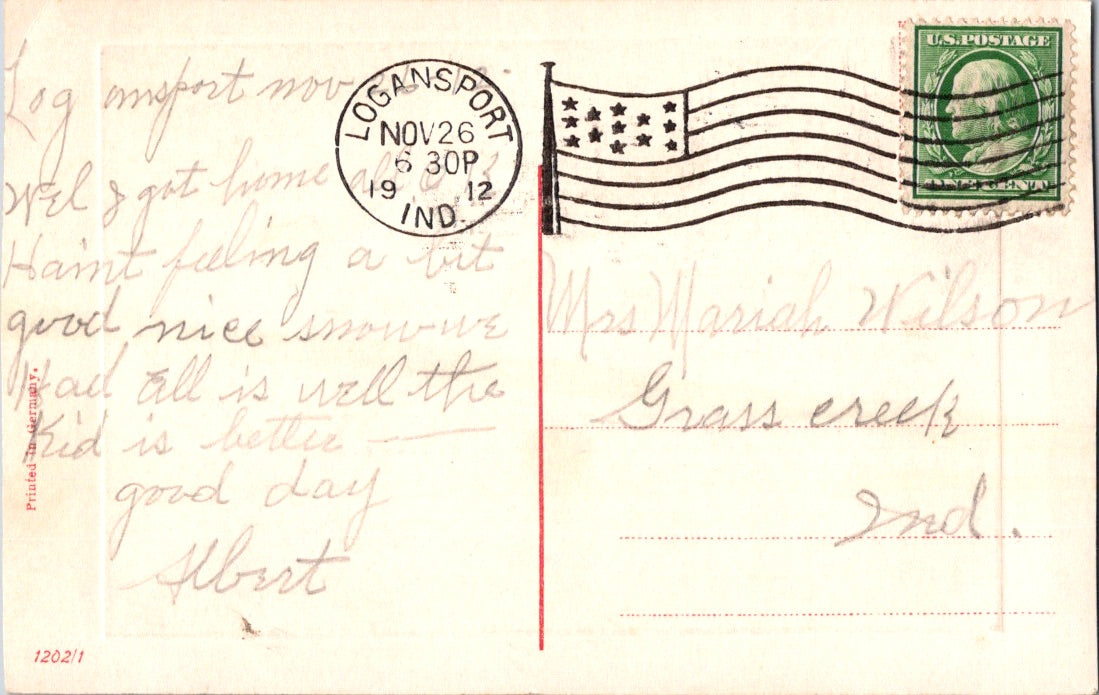 Logansport nov
LOGANSPORT
NOV 26
6 30P
19 12
IND.
U.S. POSTAGE
ONE CENT
Wel I got home all O K
Haint feeling a bit
good nice snow we
Had all is well the
Kid is better —
good day
Albert
Mrs Mariah Wilson
Grass creek
Ind.
Printed in Germany.
1202/1